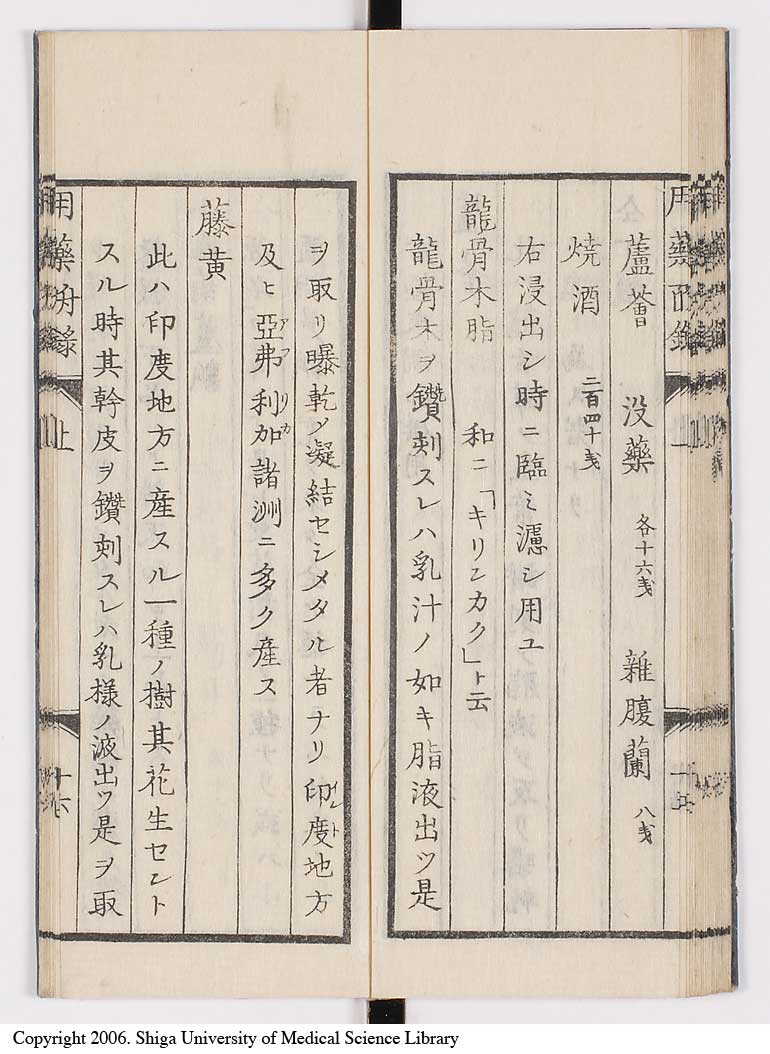 蘆薈 没藥 各十六戔 雑腹蘭 八戔
焼酒 二百四十戔
右浸出シ時ニ臨ミ濾シ用ユ
龍骨木脂 和ニ「キリンカク」ト云
龍骨木ヲ鑽刺スレハ乳汁ノ如キ脂液出ツ是
ヲ取リ曝乾ノ凝結セシメタル者ナリ印度地方
及ヒ亞弗利加諸洲ニ多ク産ス
藤黄
此ハ印度地方ニ産スル一種ノ樹其花生セント
スル時其幹皮ヲ鑽刺スレハ乳様ノ液出ツ是ヲ取
用藥 上 十六
Copyright 2006. Shiga University of Medical Science Library